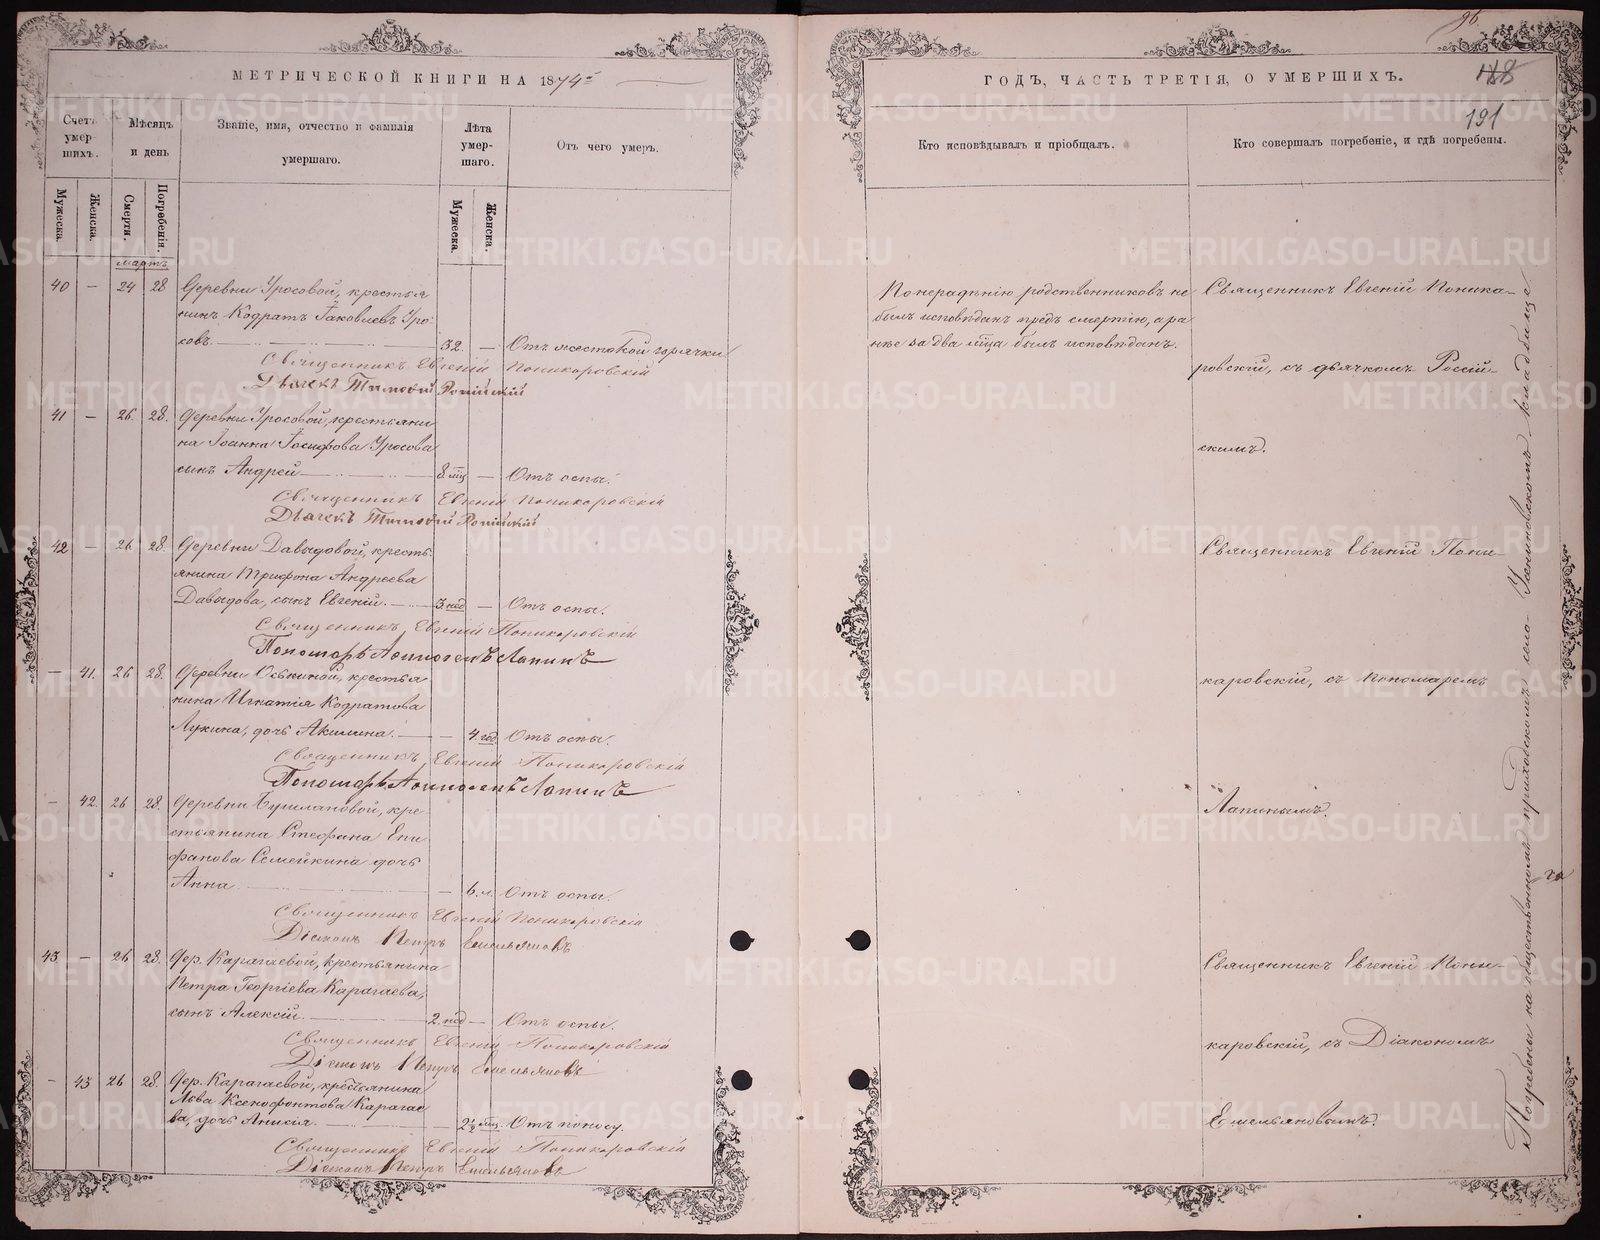 МЕТРИЧЕСКОЙ КНИГИ НА 1874й
Счетъ умер-шихъ.
Мѣсяцъ и день
Званіе, имя, отчество и фамилія умершаго.
Лѣта умер-шаго.
Отъ чего умеръ.
Мужеска.
Женска.
Смерти.
Погребенія.
Мужеска.
Женска.
Мартъ
40 — 24 28 Деревни Уросовой, крестья
нинъ Кодратъ Іаковлевъ Уро-
совъ. 32. — Отъ жестокой горячки
Священникъ Евгеній Поникаровскій
Дьячекъ Тимофей Россійскій
41 — 26 28. Деревни Уросовой, крестьяни
на Іоанна Іосифова Уросова
сынъ Андрей 8 мц — Отъ оспы.
Священникъ Евгеній Поникаровскій
Дьячекъ Тимофей Россійскій
42 — 26 28. Деревни Давыдовой, кресть
янина Трифона Андреева
Давыдова, сынъ Евгеній. 3 нед — Отъ оспы.
Священникъ Евгеній Поникаровскій
Пономарь Лапинъ
— 41. 26 28. Деревни крестья
нина Игнатія Кодратова
Лукина, дочь Акилина. — 4. год Отъ оспы.
Священникъ Евгеній Поникаровскій
Пономарь Лапинъ
— 42. 26 28. Деревни кре-
стьянина Стефана Епи
фанова Семейкина дочь
Анна — 6. л. Отъ оспы.
Священникъ Евгеній Поникаровскій
Діаконъ Петръ Емельяновъ
43 — 26 28. Дер. Карагаевой, крестьянина
Петра Георгіева Карагаева,
сынъ Алексій. 2. нед — Отъ оспы.
Священникъ Евгеній Поникаровскій
Діаконъ Петръ Емельяновъ
— 43 26 28. Дер. Карагаевой, крестьянина
Лова Ксенофонтова Карагае
ва, дочь Анисія. — 2½ мц. Отъ поносу.
Священникъ Евгеній Поникаровскій
Діаконъ Петръ Емельяновъ
96
ГОДЪ, ЧАСТЬ ТРЕТІЯ, О УМЕРШИХЪ.
191
Кто исповѣдывалъ и пріобщалъ.
Кто совершалъ погребеніе, и гдѣ погребены.
По нерадѣнію родственниковъ не
былъ исповѣданъ предъ смертію, а ра
нѣе за два мѣца былъ исповѣданъ.
Священникъ Евгеній Поника-
ровскій, съ дьячкомъ Россій-
скимъ.
Священникъ Евгеній Пони-
каровскій, съ пономаремъ
Лапинымъ.
Священникъ Евгеній Пони-
каровскій, съ Діакономъ
Емельяновымъ.
Погребены на общественномъ приходскомъ села кладбище
METRIKI.GASO-URAL.RU